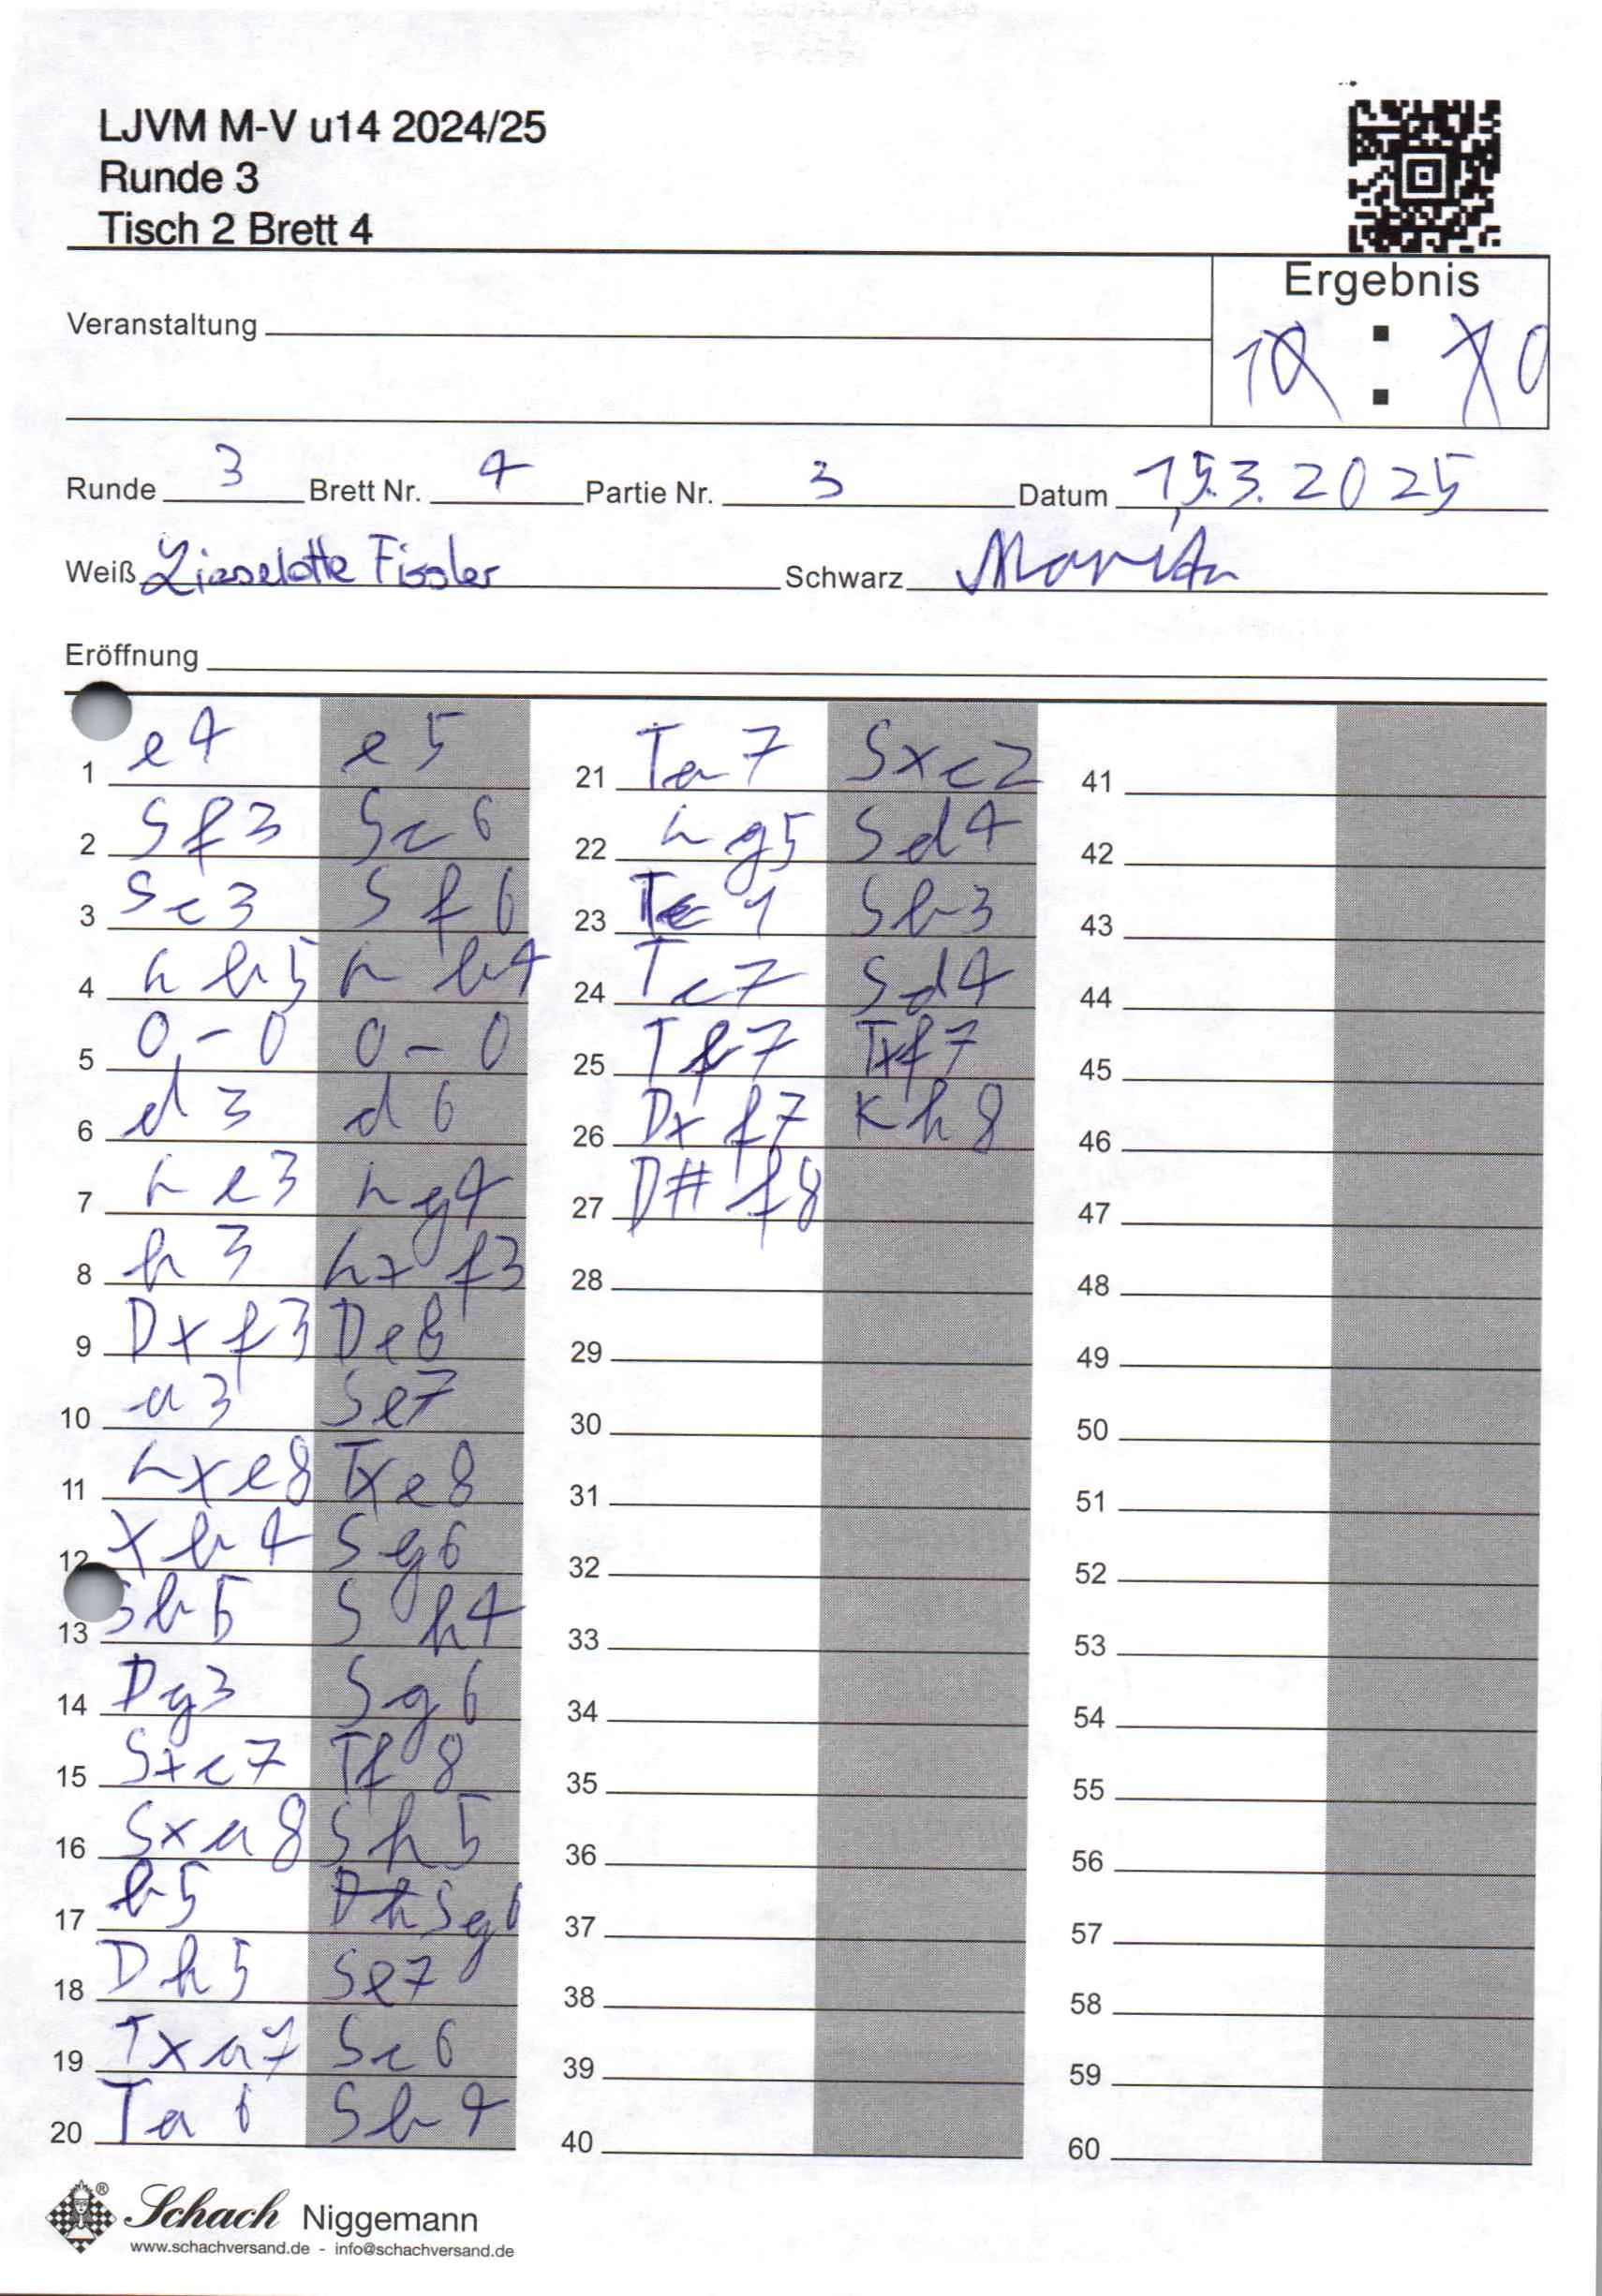 LJVM M-V u14 2024/25
Runde 3
Tisch 2 Brett 4
Ergebnis
Veranstaltung
1 : 0
Runde 3 Brett Nr. 4 Partie Nr. 3 Datum 15.3.2025
Weiß Lieselotte Fissler Schwarz
Eröffnung
1 e4 e5
2 Sf3 Sc6
3 Sc3 Sf6
4 Lb5 Lb4
5 0-0 0-0
6 d3 d6
7 Le3 Lg4
8 h3 Lxf3
9 Dxf3 De8
10 a3 Se7
11 Lxe8 Txe8
12 xb4 Sg6
13 Sb5 Sh4
14 Dg3 Sg6
15 Sxc7 Tf8
16 Sxa8 Sh5
17 b5 Sg6
18 Dh5 Se7
19 Txa7 Sc6
20 Ta6 Sb4
21 Ta7 Sxc2
22 Lg5 Sd4
23 Tc1 Sb3
24 Tc7 Sd4
25 Tf7 Txf7
26 Dxf7 Kh8
27 D# f8
28
29
30
31
32
33
34
35
36
37
38
39
40
41
42
43
44
45
46
47
48
49
50
51
52
53
54
55
56
57
58
59
60
Schach Niggemann
www.schachversand.de - info@schachversand.de